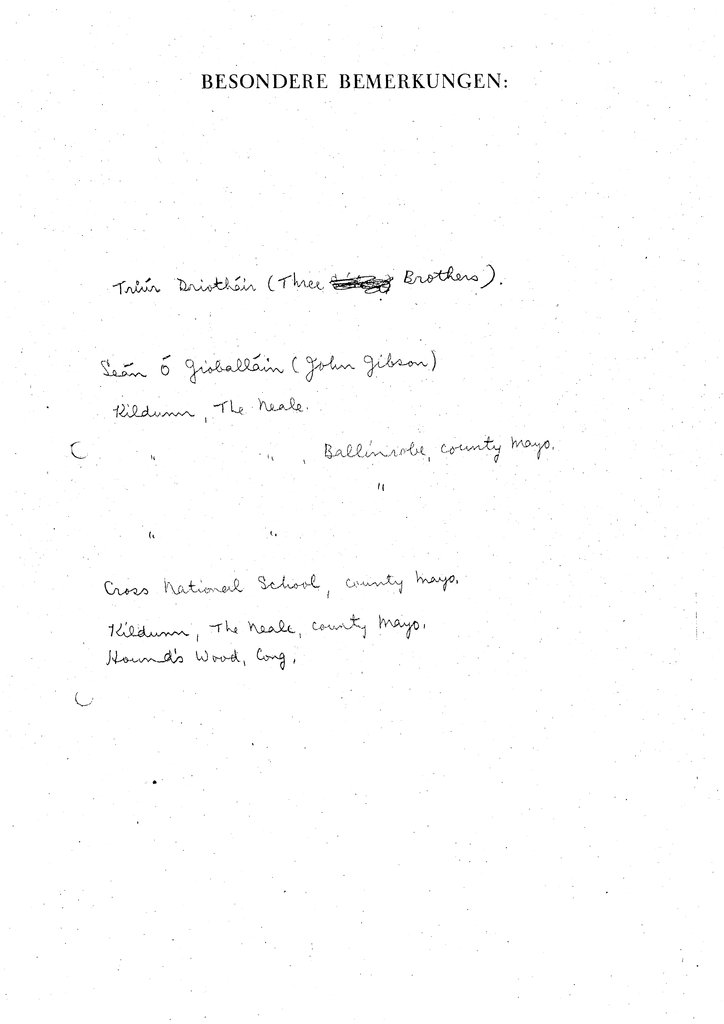 BESONDERE BEMERKUNGEN:
Triúr Driotháir (Three Brothers).
Seán Ó Gioballáin (John Gibson)
Kildunn, The Neale.
" " , Ballinrobe, county Mayo.
"
" "
Cross National School, county Mayo.
Kildunn, The Neale, county Mayo.
Hound's Wood, Cong.